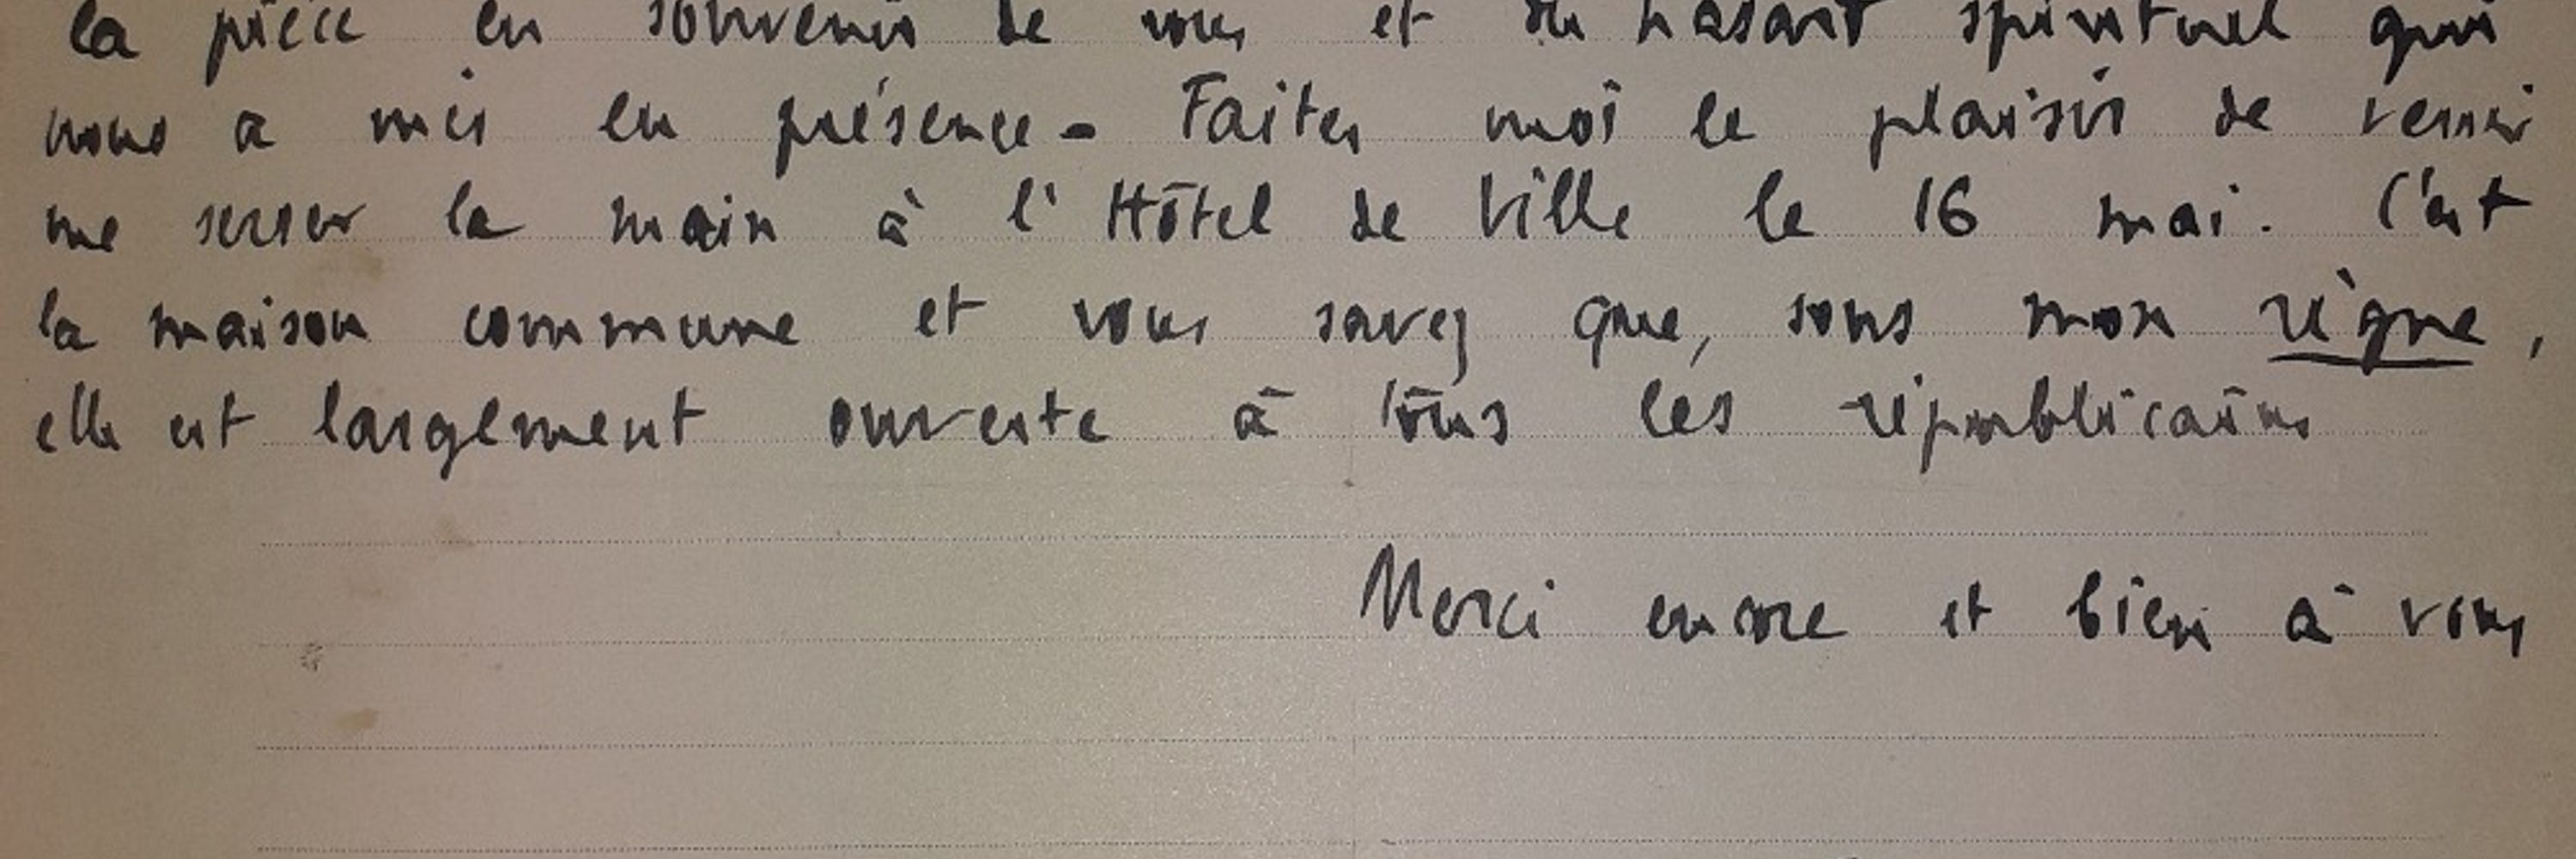 la pièce en souvenir de vous et du hasard spirituel qui
nous a mis en présence - Faites moi le plaisir de venir
me serrer la main à l'Hôtel de Ville le 16 mai. C'est
la maison commune et vous savez que, sous mon règne,
elle est largement ouverte à tous les républicains
Merci encore et bien à vous